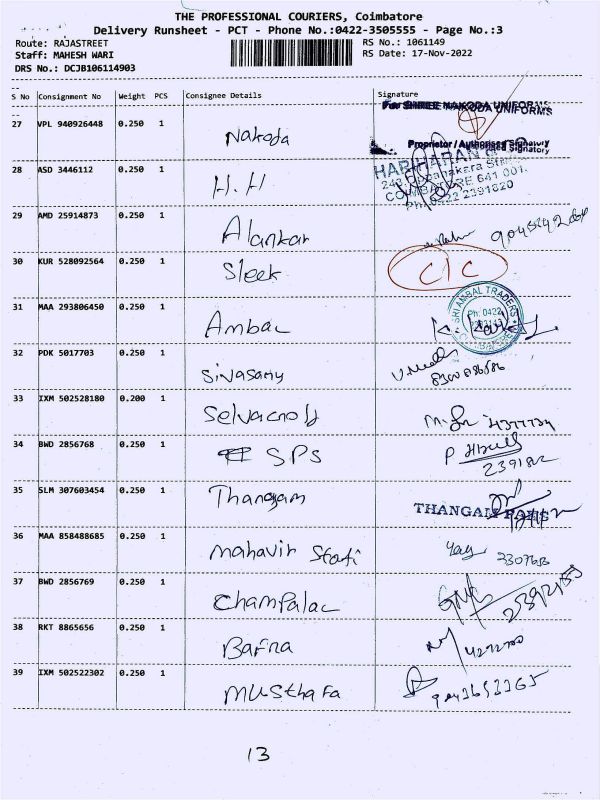 THE PROFESSIONAL COURIERS, Coimbatore
Delivery Runsheet - PCT - Phone No.:0422-3505555 - Page No.:3
Route: RAJASTREET
RS No.: 1061149
Staff: MAHESH WARI
RS Date: 17-Nov-2022
DRS No.: DCJB106114903
S No Consignment No Weight PCS Consignee Details Signature
For SHREE NAKODA UNIFORMS
27 VPL 940926448 0.250 1 Nakoda
Proprietor / Authorised Signatory
28 ASD 3446112 0.250 1 H.H
HARIHARAN
COIMBATORE 641 001.
Ph: 0422 2391820
29 AMD 25914873 0.250 1 Alankar
30 KUR 528092564 0.250 1 Sleek C/C
31 MAA 293806450 0.250 1 Ambal
SRI AMBAL TRADERS
Ph: 0422
COIMBATORE
32 PDK 5017703 0.250 1 Sivasamy
33 IXM 502528180 0.200 1
34 BWD 2856768 0.250 1 SPS
239182
35 SLM 307603454 0.250 1 Thangam
THANGAM
36 MAA 858488685 0.250 1 Mahavir
37 BWD 2856769 0.250 1 Champalal
38 RKT 8865656 0.250 1 Bafna
39 IXM 502522302 0.250 1 Musthafa
13